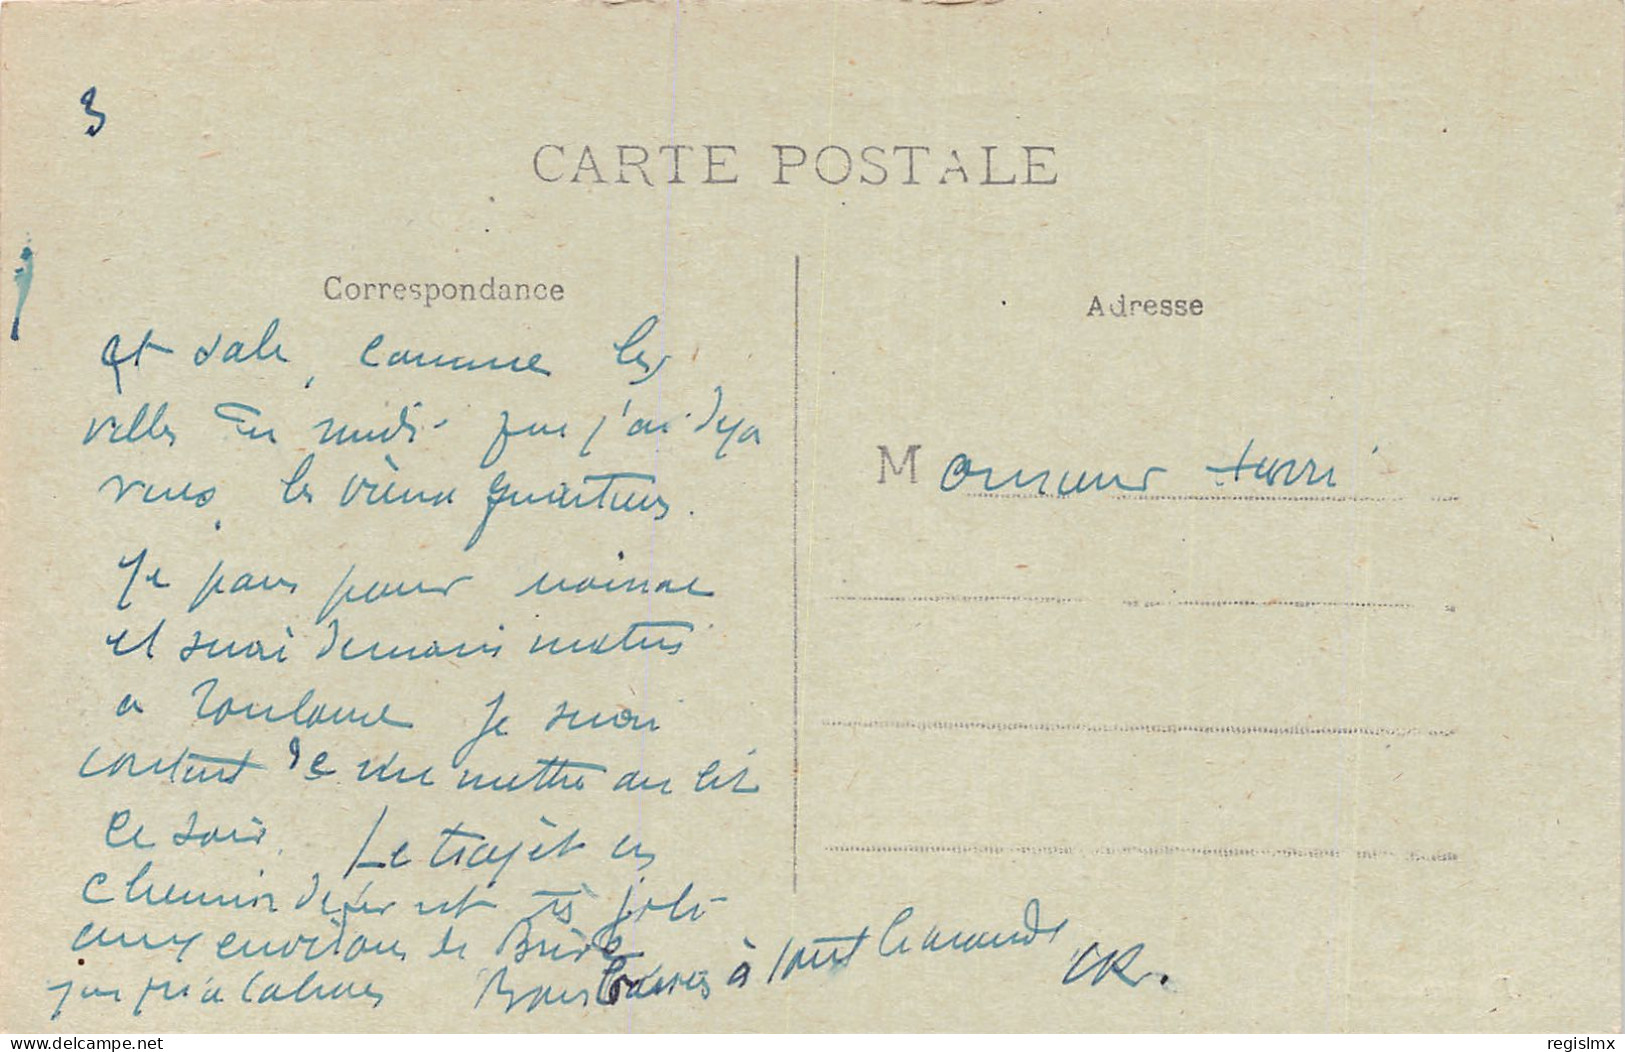 3
CARTE POSTALE
Correspondance
Adresse
et sale, comme les
villes du midi que j'ai deja
vues, les vieux quartiers.
Je pars pour
et serai demain matin
a Toulouse Je serai
content de me mettre au lit
ce soir. Le trajet en
chemin de fer est très joli
aux environs de Brive
jusqu'a Cahors Bons baisers à tout le monde
CR.
Monsieur Henri
delcampe.net
regislmx